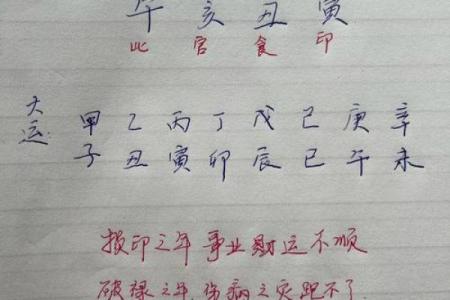 午 亥 丑 寅
比 官 食 印
大运
甲 乙 丙 丁 戊 己 庚 辛
子 丑 寅 卯 辰 巳 午 未
损印之年事业财运不顺
破禄之年,伤病之灾跑不了